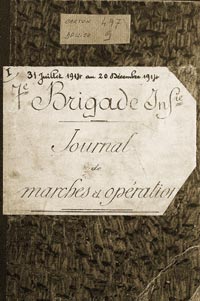 CARTON 497
DOSSIER 9
I
31 Juillet 1914 au 20 Décembre 1914
7e Brigade Infie
Journal
de
marches et opération